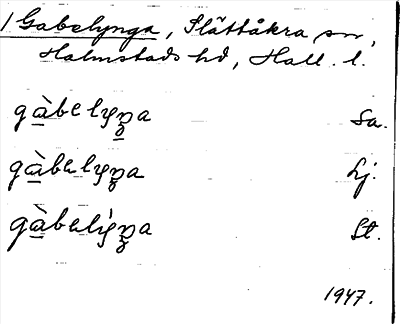 1 Gabelynga, Slättåkra sn,
Halmstads hd, Hall. l.
gàbelyŋa Sa.
gàbelyŋa Lj.
gàbelýŋa St.
1947.